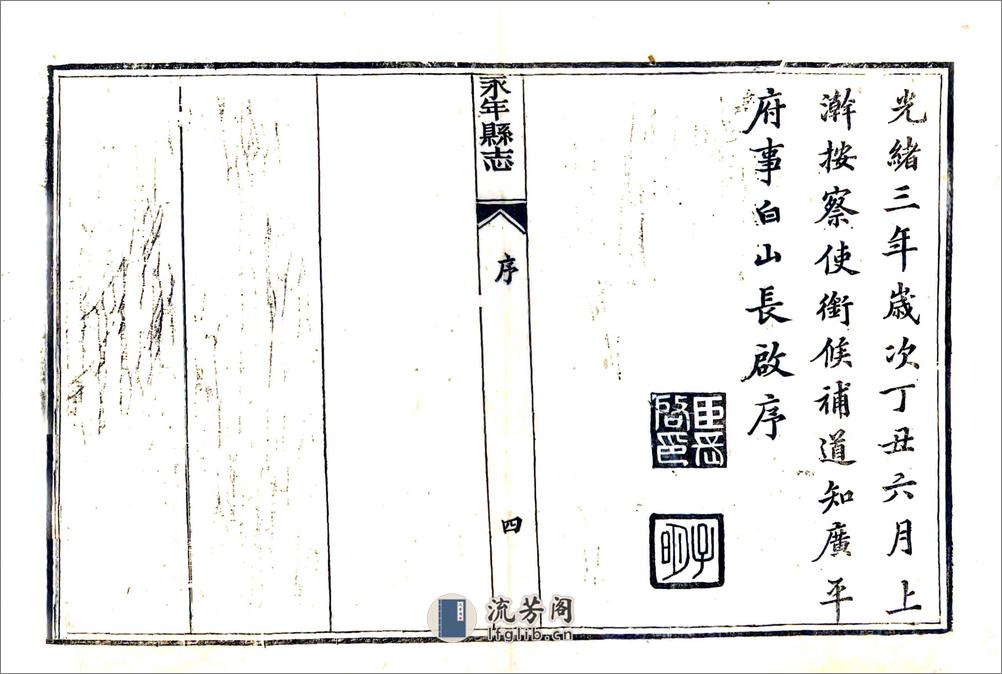 光緒三年歲次丁丑六月上
澣按察使銜候補道知廣平
府事白山長啟序
永年縣志
序
四
流芳阁
lfglib.cn